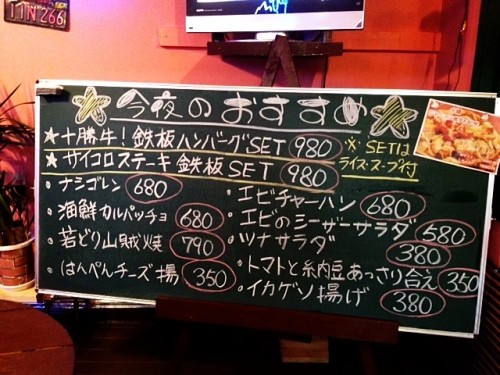 11N266
☆今夜のおすすめ☆
★十勝牛！鉄板ハンバーグSET 980
★サイコロステーキ鉄板SET 980
※SETは
ライス・スープ付
・ナシゴレン 680
・海鮮カルパッチョ 680
・若どり山賊焼 790
・はんぺんチーズ揚 350
・エビチャーハン 680
・エビのシーザーサラダ 580
・ツナサラダ 380
・トマトと納豆あっさり合え 350
・イカゲソ揚げ 380